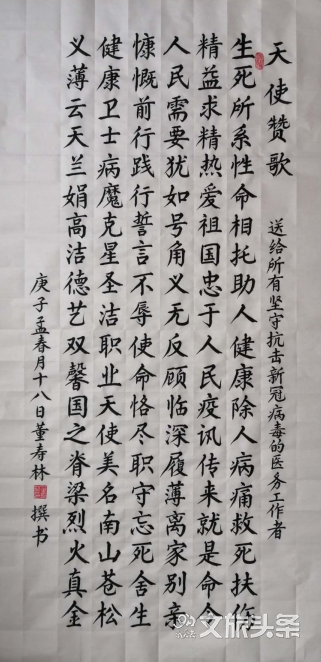 天使赞歌
送给所有坚守抗击新冠病毒的医务工作者
生死所系性命相托助人健康除人病痛救死扶伤
精益求精热爱祖国忠于人民疫讯传来就是命令
人民需要犹如号角义无反顾临深履薄离家别亲
慷慨前行践行誓言不辱使命恪尽职守忘死舍生
健康卫士病魔克星圣洁职业天使美名南山苍松
义薄云天兰娟高洁德艺双馨国之脊梁烈火真金
庚子孟春月十八日董寿林撰书
文旅头条